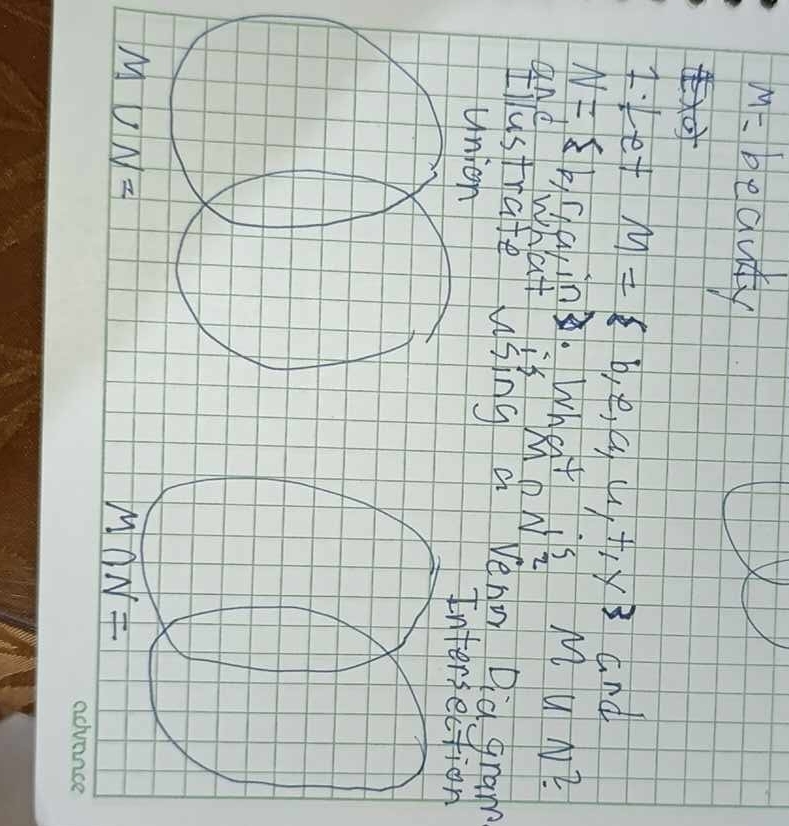 M = beauty
1. Let M = { b, e, a, u, t, y } and
N = { b, r, a, i, n }. What is M U N?
and what is M ∩ N?
Illustrate using a Venn Diagram
Union
Intersection
M U N =
M ∩ N =
advance